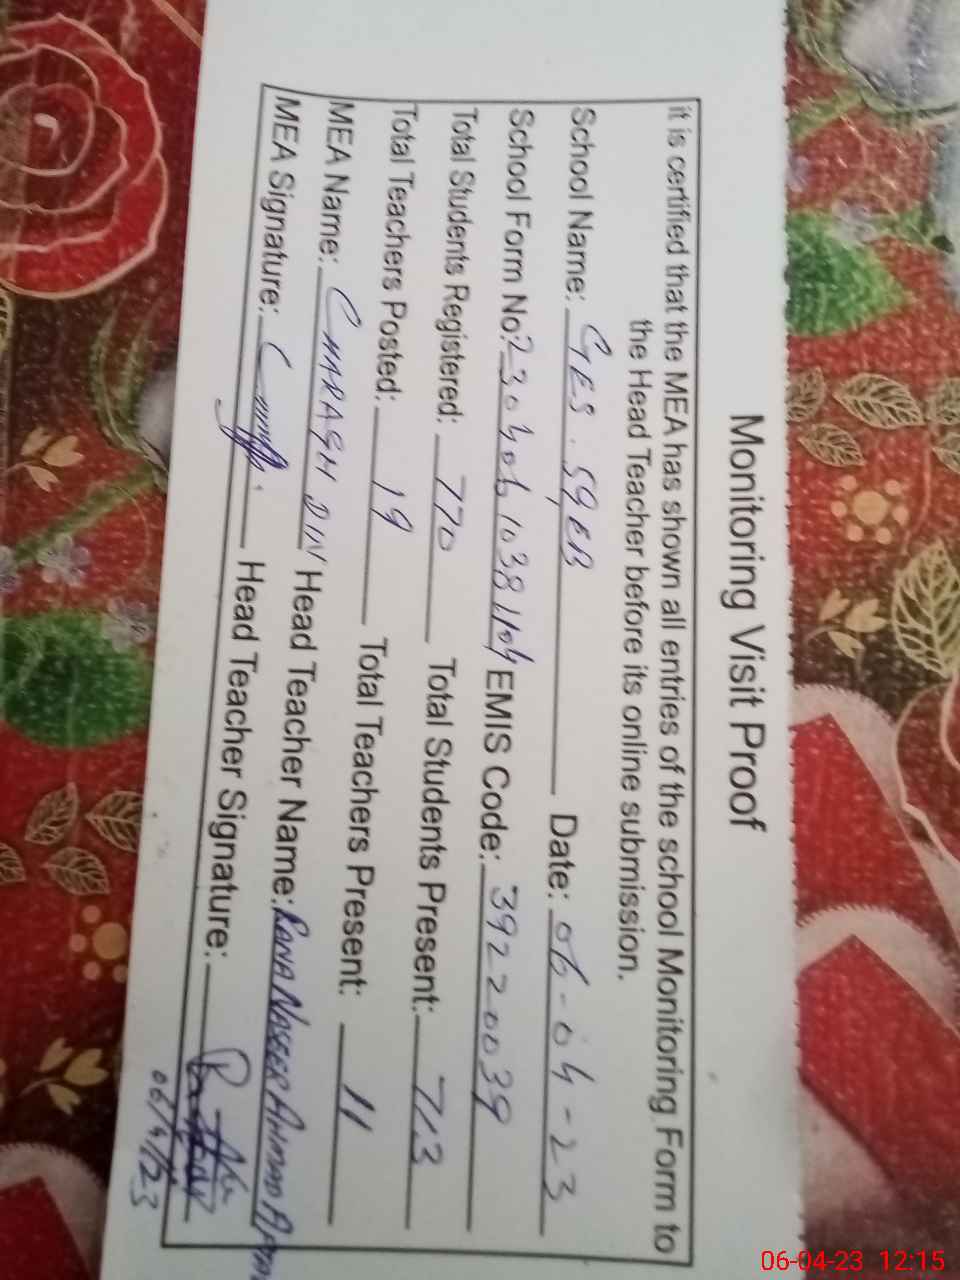 Monitoring Visit Proof
it is certified that the MEA has shown all entries of the school Monitoring Form to
the Head Teacher before its online submission.
School Name: GES. 59EB Date: 06-04-23
School Form No: 230406 1038 1104 EMIS Code: 39220039
Total Students Registered: 770 Total Students Present: 713
Total Teachers Posted: 19 Total Teachers Present: 11
MEA Name: CHARAGH DIN Head Teacher Name: RANA NASEER AHMAD
MEA Signature: Head Teacher Signature:
06/4/23
06-04-23 12:15